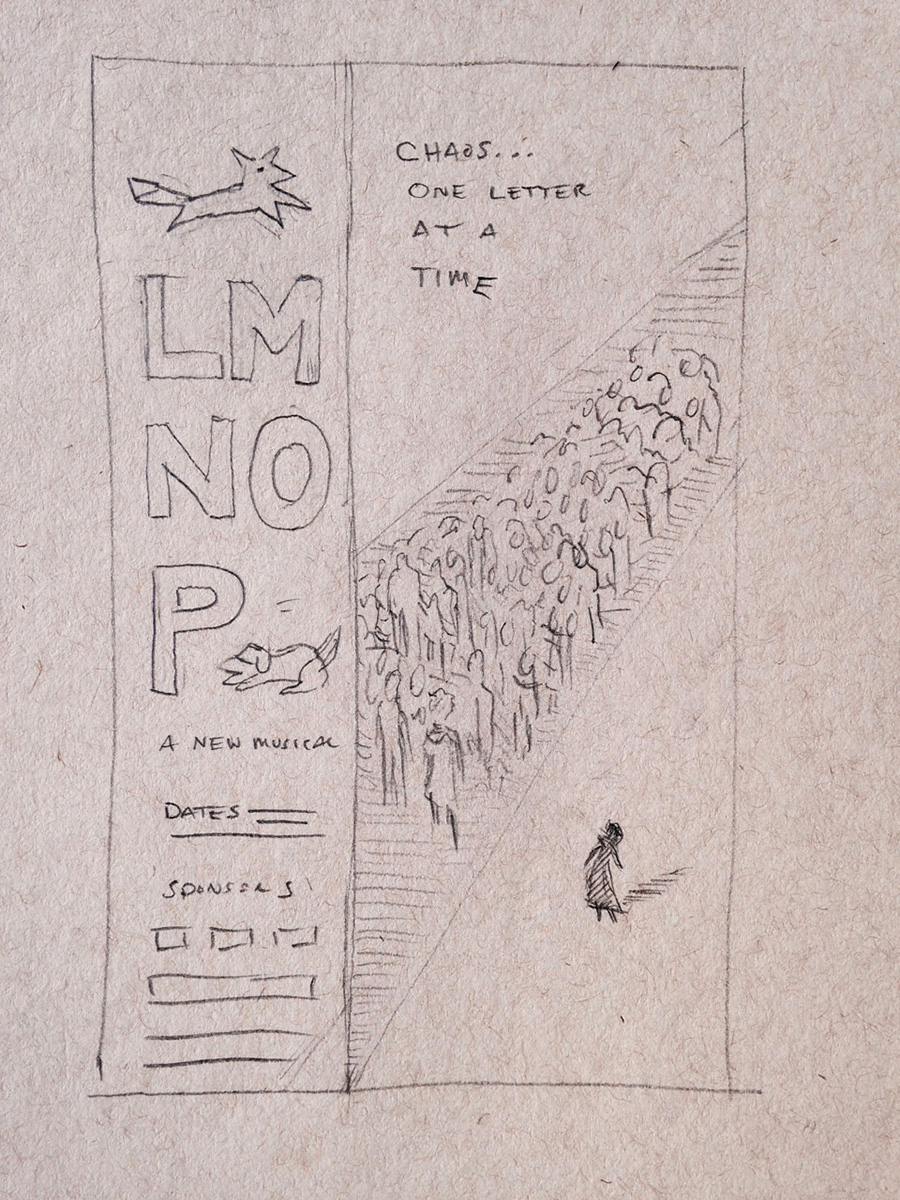 LM
NO
P
A NEW MUSICAL
DATES
SPONSORS
CHAOS...
ONE LETTER
AT A
TIME